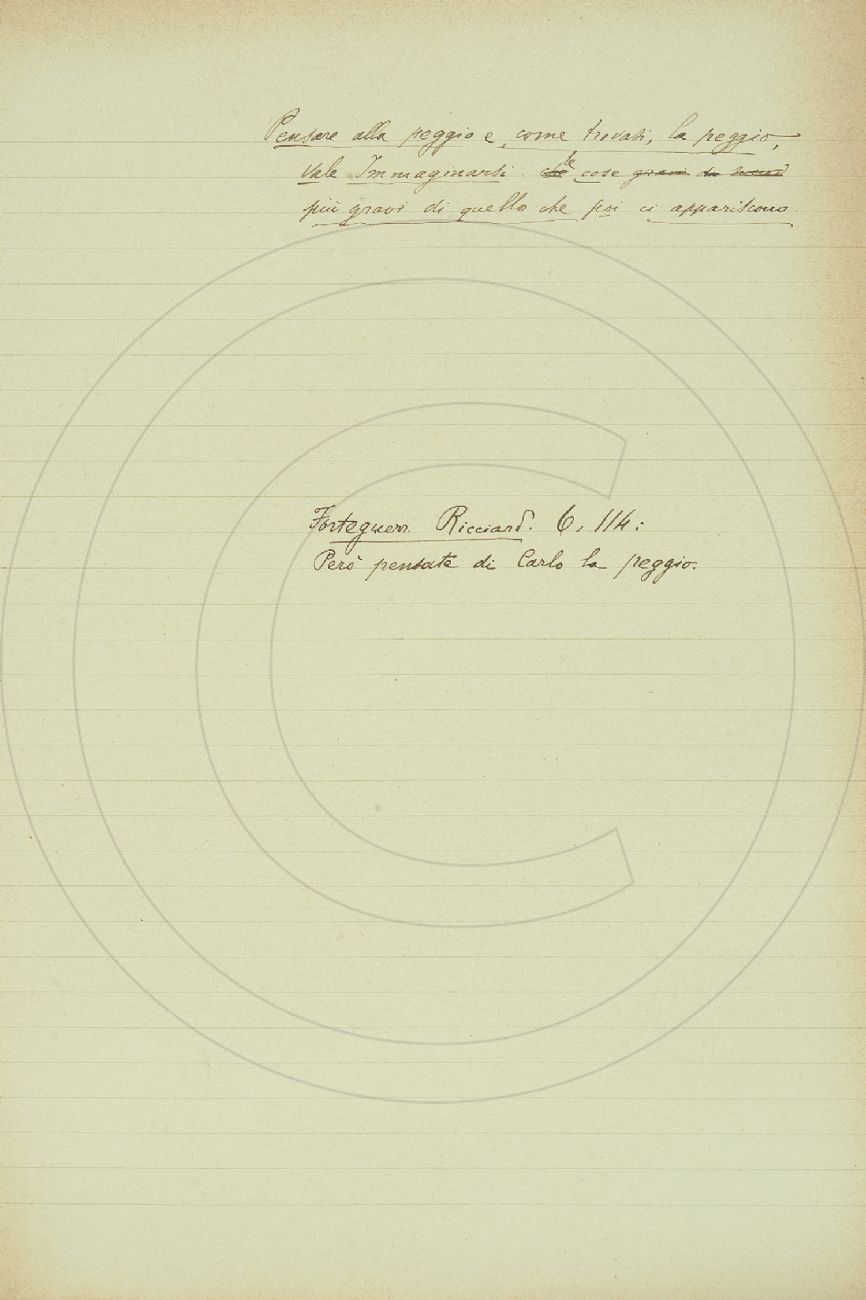 Pensare alla peggio e, come trovasi, la peggio,
vale Immaginarsi le cose
più gravi di quello che poi ci appariscono.
Forteguerr. Ricciard. 6, 114:
Però pensate di Carlo la peggio.